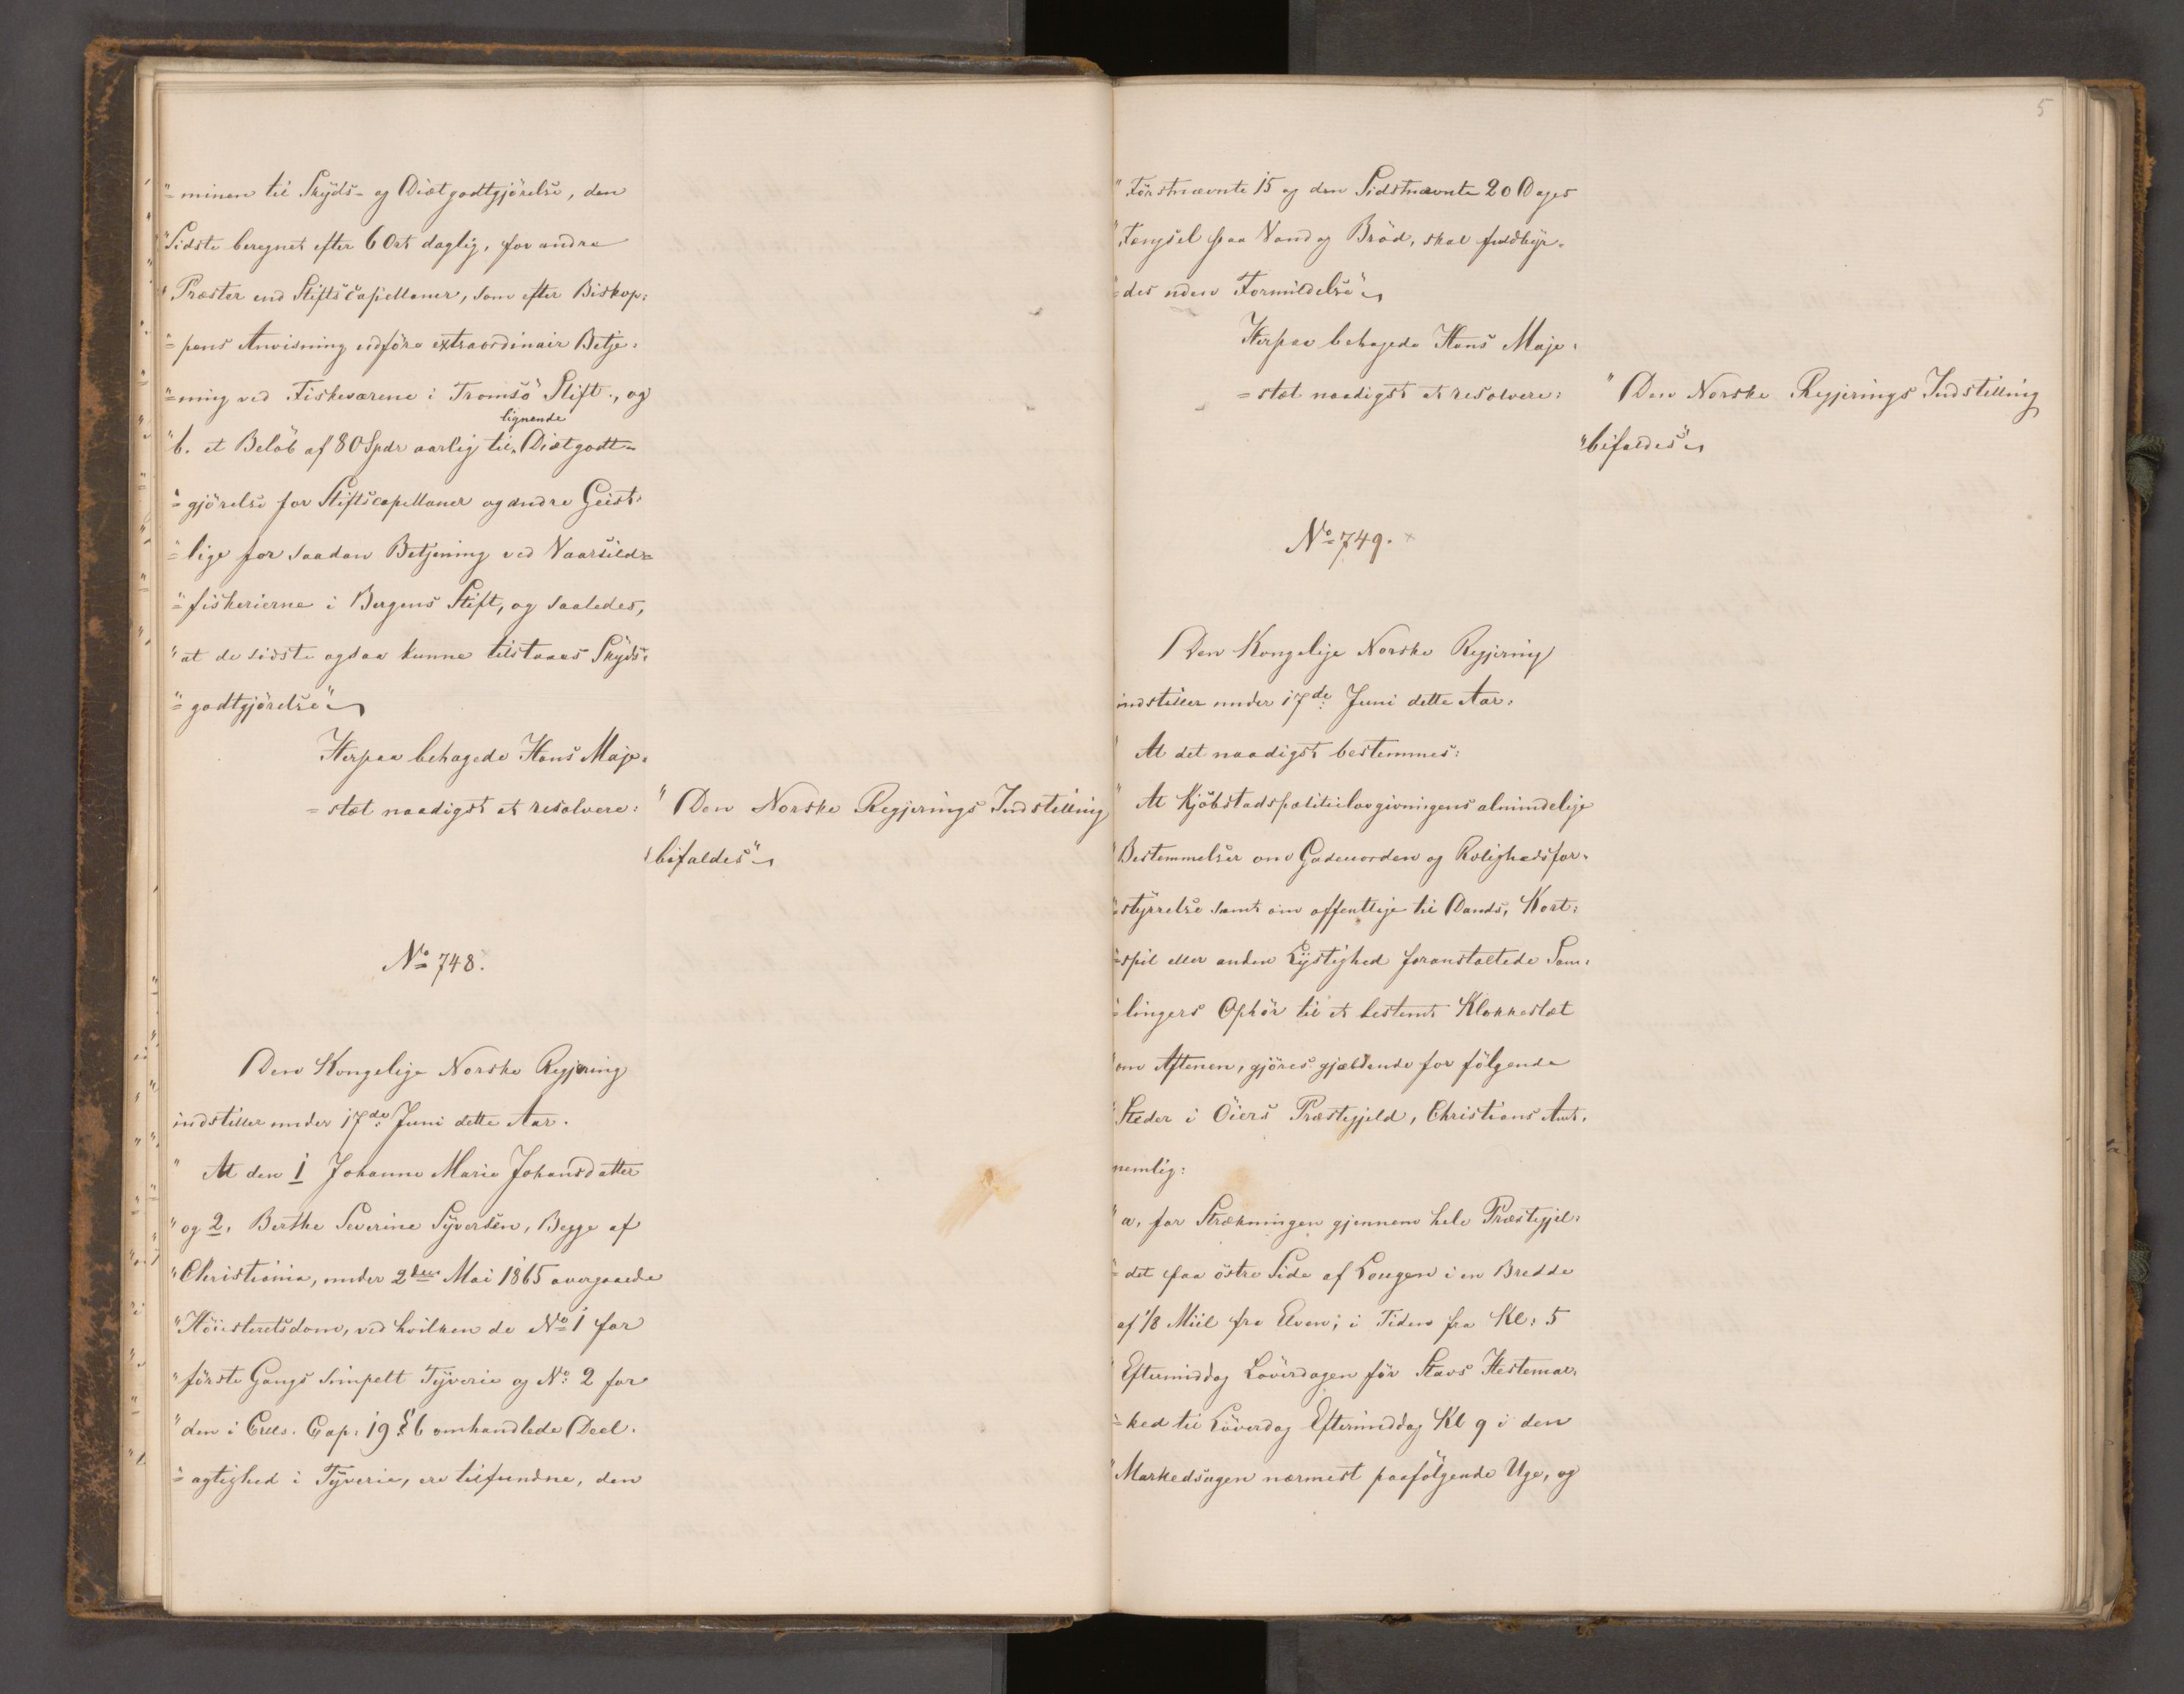 "=minen til Skyds- og Diætgodtgjörelse, den
"Sidste beregnet efter 6 Ort daglig, for andre
"Præster end Stiftscapellaner, som efter Biskop=
"=pens Anvisning udföre extraordinair Betje=
"=ning ved Fiskeværene i Tromsö Stift., og
lignende
"b. et Belöb af 80 Spdr aarlig til Diætgodt=
"=gjörelse for Stiftscapellaner og andre Geist=
"=lige for saadan Betjening ved Vaarsilds=
"=fiskerierne i Bergens Stift, og saaledes,
"at de sidste ogsaa kunne tilstaaes Skyds=
"=godtgjörelse"
Herpaa behagede Hans Maje=
=stæt naadigst at resolvere:
"Den Norske Regjerings Indstilling
"bifaldes"
No 748.
Den Kongelige Norske Regjering
indstiller under 17de Juni dette Aar.
"At den 1 Johanne Marie Johansdatter
"og 2, Berthe Severine Syversen, Begge af
"Christiania, under 2den Mai 1865 overgaaede
"Höiesteretsdom, ved hvilken de No 1 for
"förste Gangs simpelt Tyverie og No 2 for
"den i Crls. Cap: 19 § 6 omhandlede Deel=
"=agtighed i Tyverie, ere tilfundne, den
5
"Förstnævnte 15 og den Sidstnævnte 20 Dages
"Fængsel paa Vand og Bröd, skal fuldbyr=
"=des uden Formildelse"
Herpaa behagede Hans Maje=
=stæt naadigst at resolvere:
"Den Norske Regjerings Indstilling
"bifaldes"
No 749.
Den Kongelige Norske Regjering
indstiller under 17de Juni dette Aar:
"At det naadigst bestemmes:
"At Kjöbstadspolitilovgivningens almindelige
"Bestemmelser om Gadeuorden og Rolighedsfor=
"=styrrelse samt om offentlige til Dands, Kort=
"=spil eller anden Lystighed foranstaltede Sam=
"=lingers Ophör til et bestemt Klokkeslæt
"om Aftenen, gjöres gjældende for fölgende
"Steder i Öiers Præstegjeld, Christians Amt,
nemlig:
"a, for Strækningen gjennem hele Præstegjel=
"=det paa östre Side af Lougen i en Bredde
af 1/8 Miil fra Elven; i Tiden fra Kl: 5
"Eftermiddag Löverdagen för Stavs Hestemar=
"=ked til Löverdag Eftermiddag Kl 9 i den
"Markedsugen nærmest paafölgende Uge, og